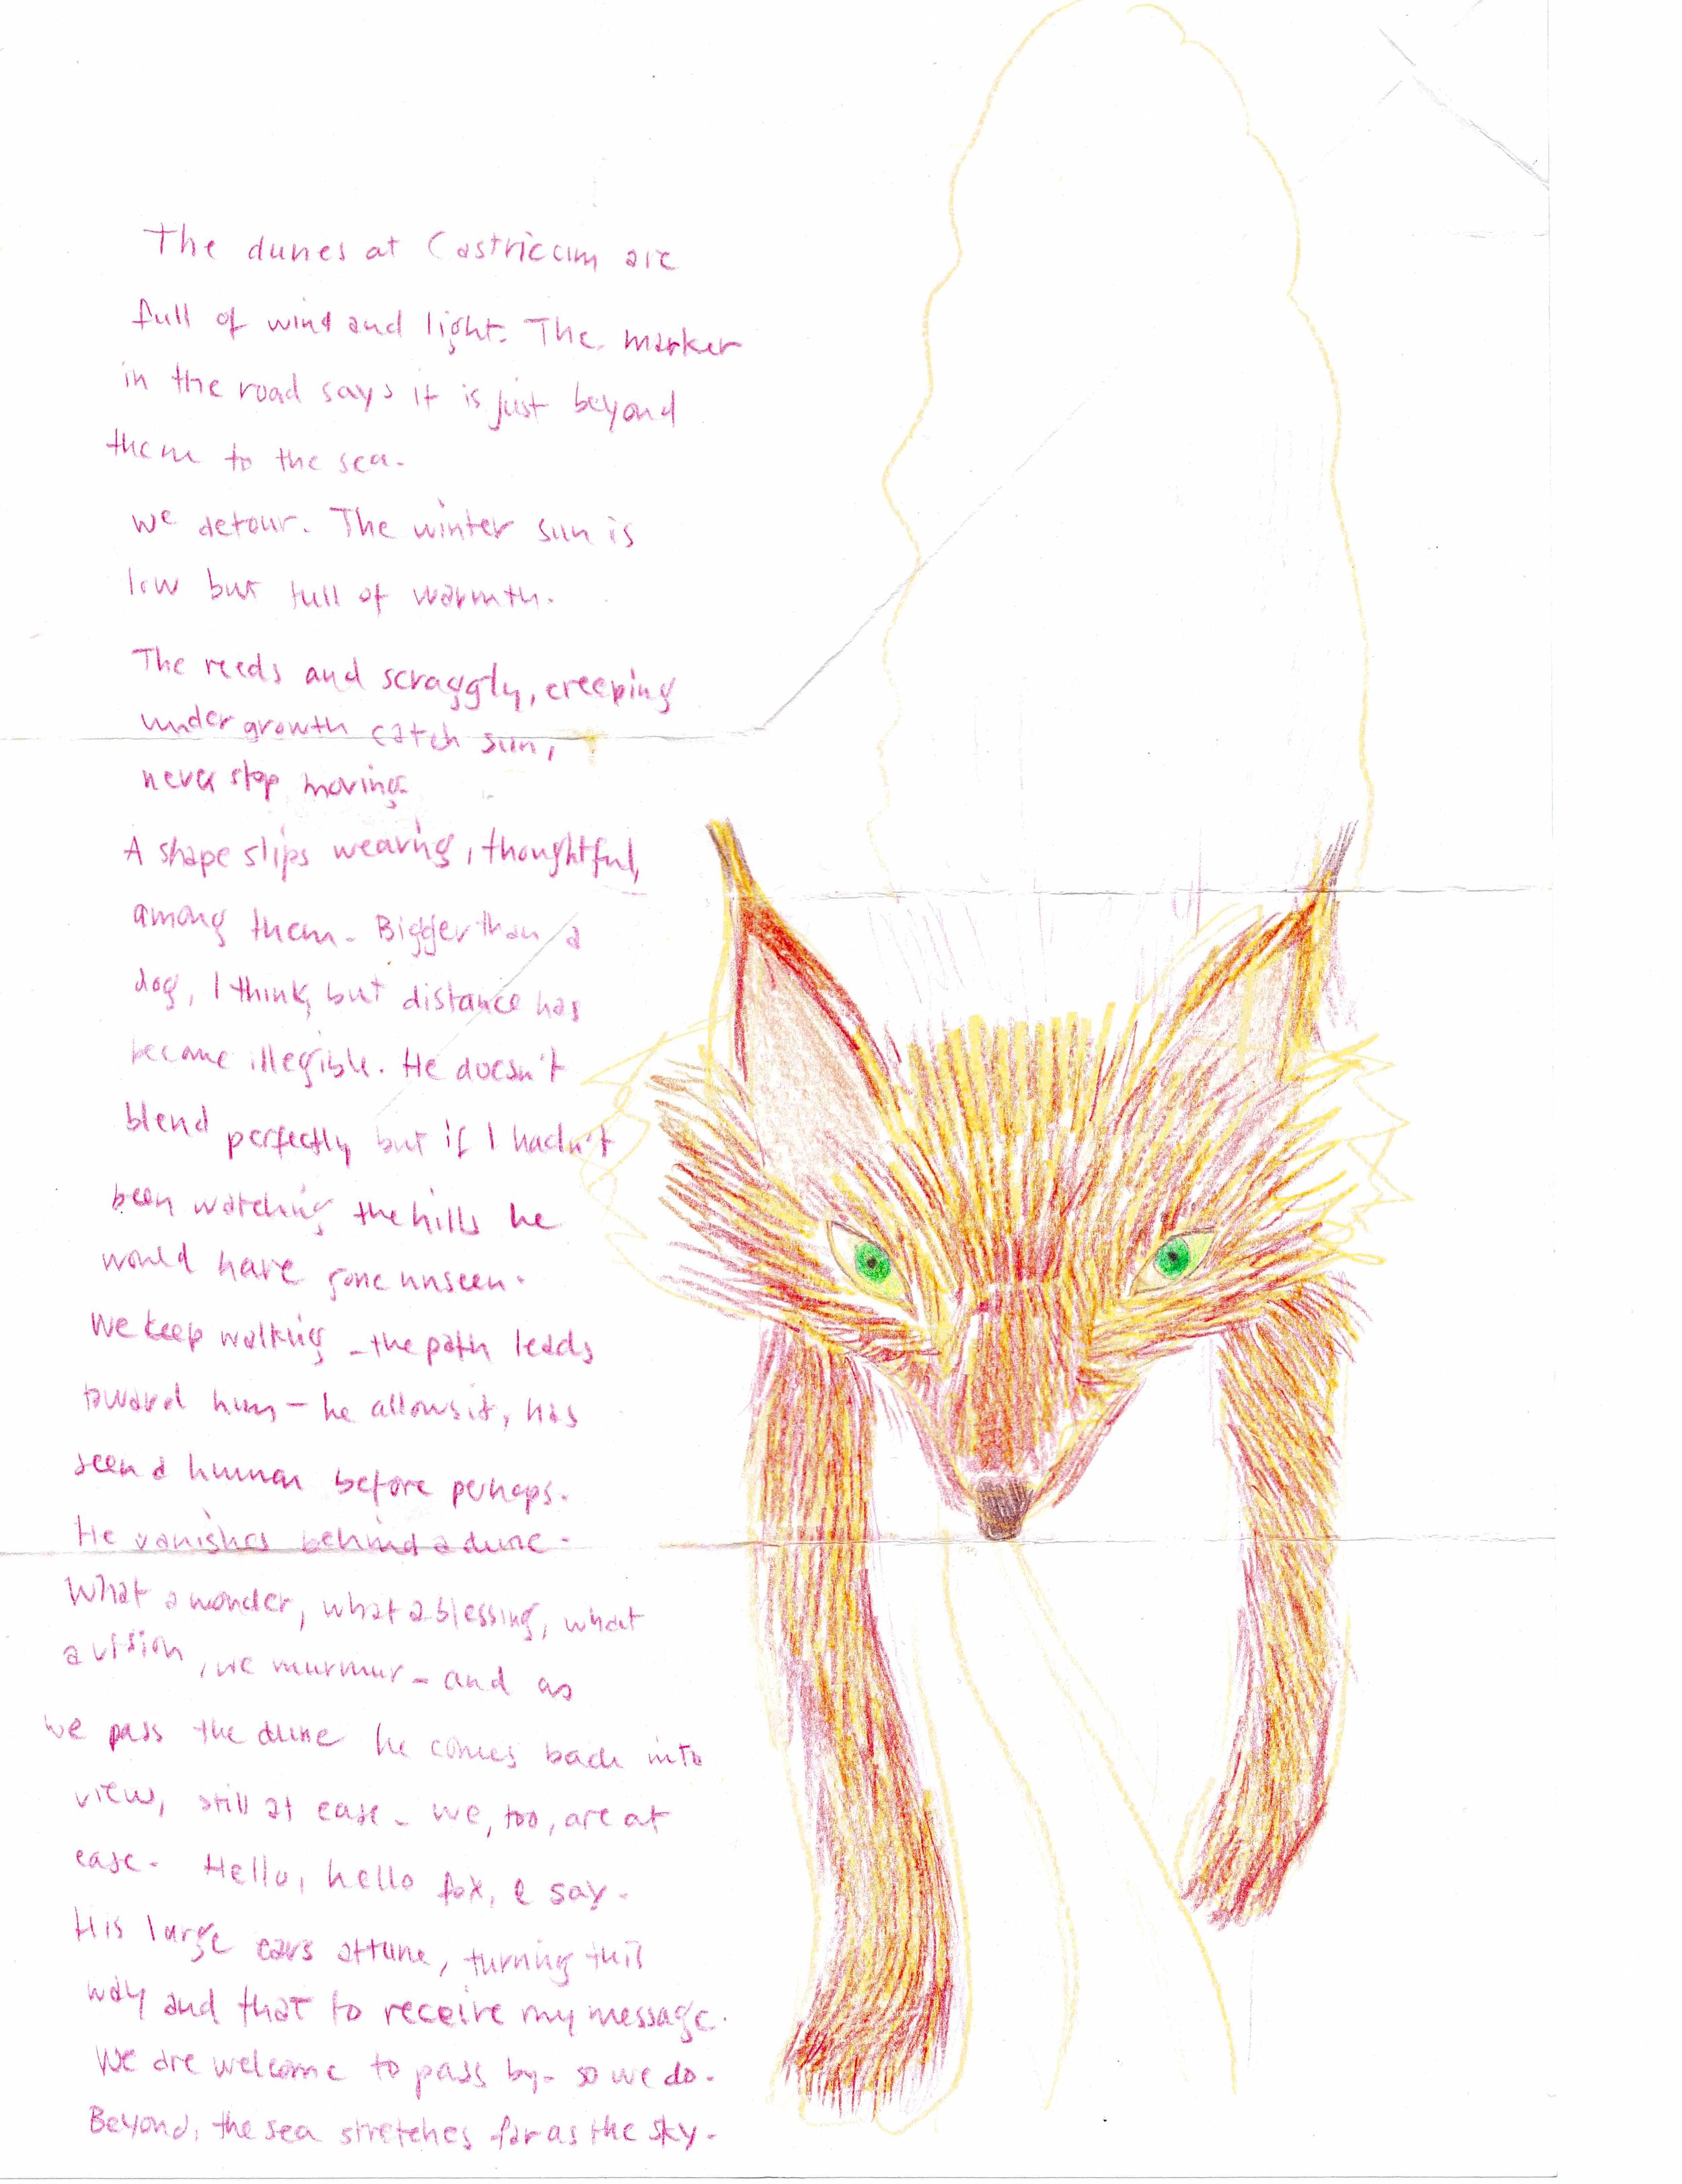 The dunes at Castriccum are
full of wind and light. The marker
in the road says it is just beyond
them to the sea.
we detour. The winter sun is
low but full of warmth.
The reeds and scraggly, creeping
undergrowth catch sun,
never stop moving.
A shape slips weaving, thoughtful,
among them. Bigger than a
dog, I think, but distance has
become illegible. He doesn't
blend perfectly but if I hadn't
been watching the hills he
would have gone unseen.
We keep walking – the path leads
toward him – he allows it, has
seen a human before perhaps.
He vanishes behind a dune.
What a wonder, what a blessing, what
a vision, we murmur – and as
we pass the dune he comes back into
view, still at ease – we, too, are at
ease. Hello, hello fox, I say.
His large ears attune, turning this
way and that to receive my message.
We are welcome to pass by – so we do.
Beyond, the sea stretches far as the sky.